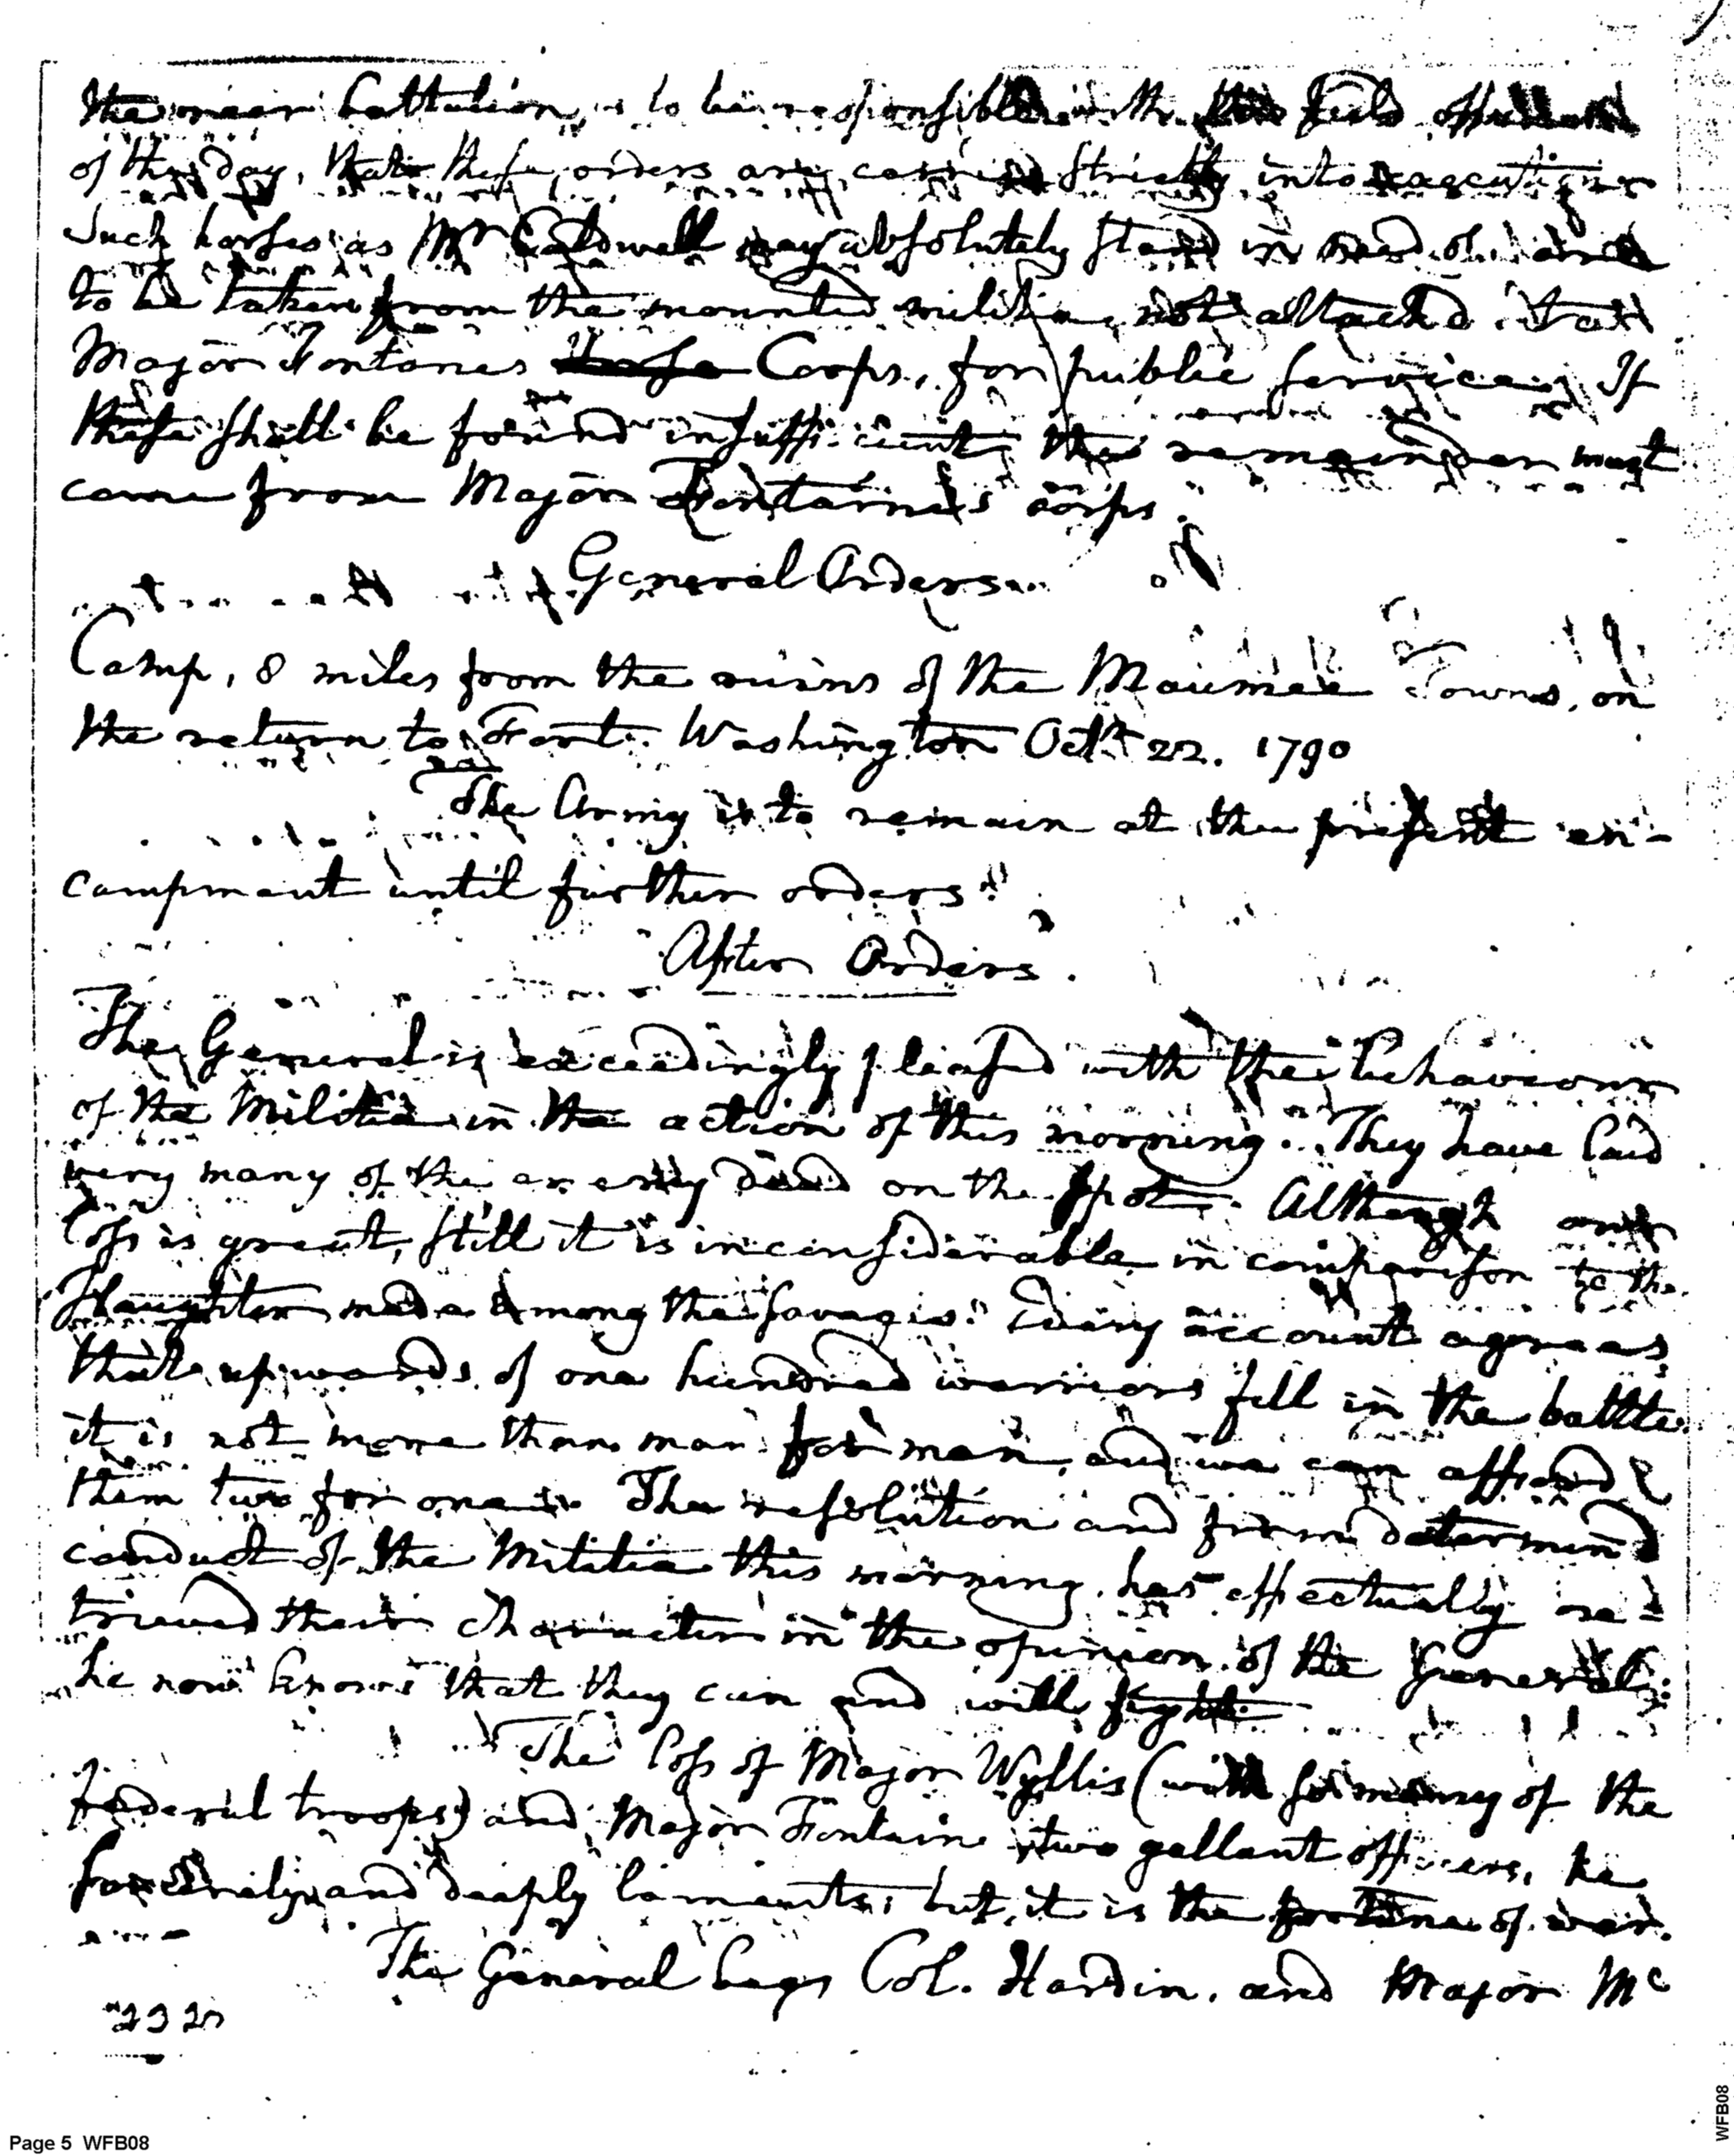 the rear battalion, is to be responsible with the field officer
of the day, that these orders are carried strictly into execution
Such horses as Mr Caldwell may absolutely stand in need of are
to be taken from the mounted militia, not attached to
Major Fontanes Corps, for public service, If
these shall be found insufficient, the remainder must
come from Major Fontaine's corps.
General Orders
Camp, 8 miles from the ruins of the Maumee Towns, on
the return to Fort Washington Octr 22. 1790
The Army is to remain at the present en-
campment until further orders.
After Orders.
The General is exceedingly pleased with the behaviour
of the Militia in the action of this morning. They have laid
very many of the enemy dead on the spot. Although our
loss is great, still it is inconsiderable in comparison to the
slaughter made among the savages. Every account agrees
that upwards of one hundred warriors fell in the battle
it is not more than man for man, and we can afford
them two for one. The resolution and firm determind
conduct of the Militia this morning has effectually re-
trieved their character in the opinion of the General:
he now knows that they can and will fight
The loss of Major Wyllis (with so many of the
federal troops) and Major Fontain two gallant officers, he
sincerely and deeply laments, but it is the fortune of war.
The General begs Col. Hardin, and Major Mc
Page 5 WFB08
WFB08